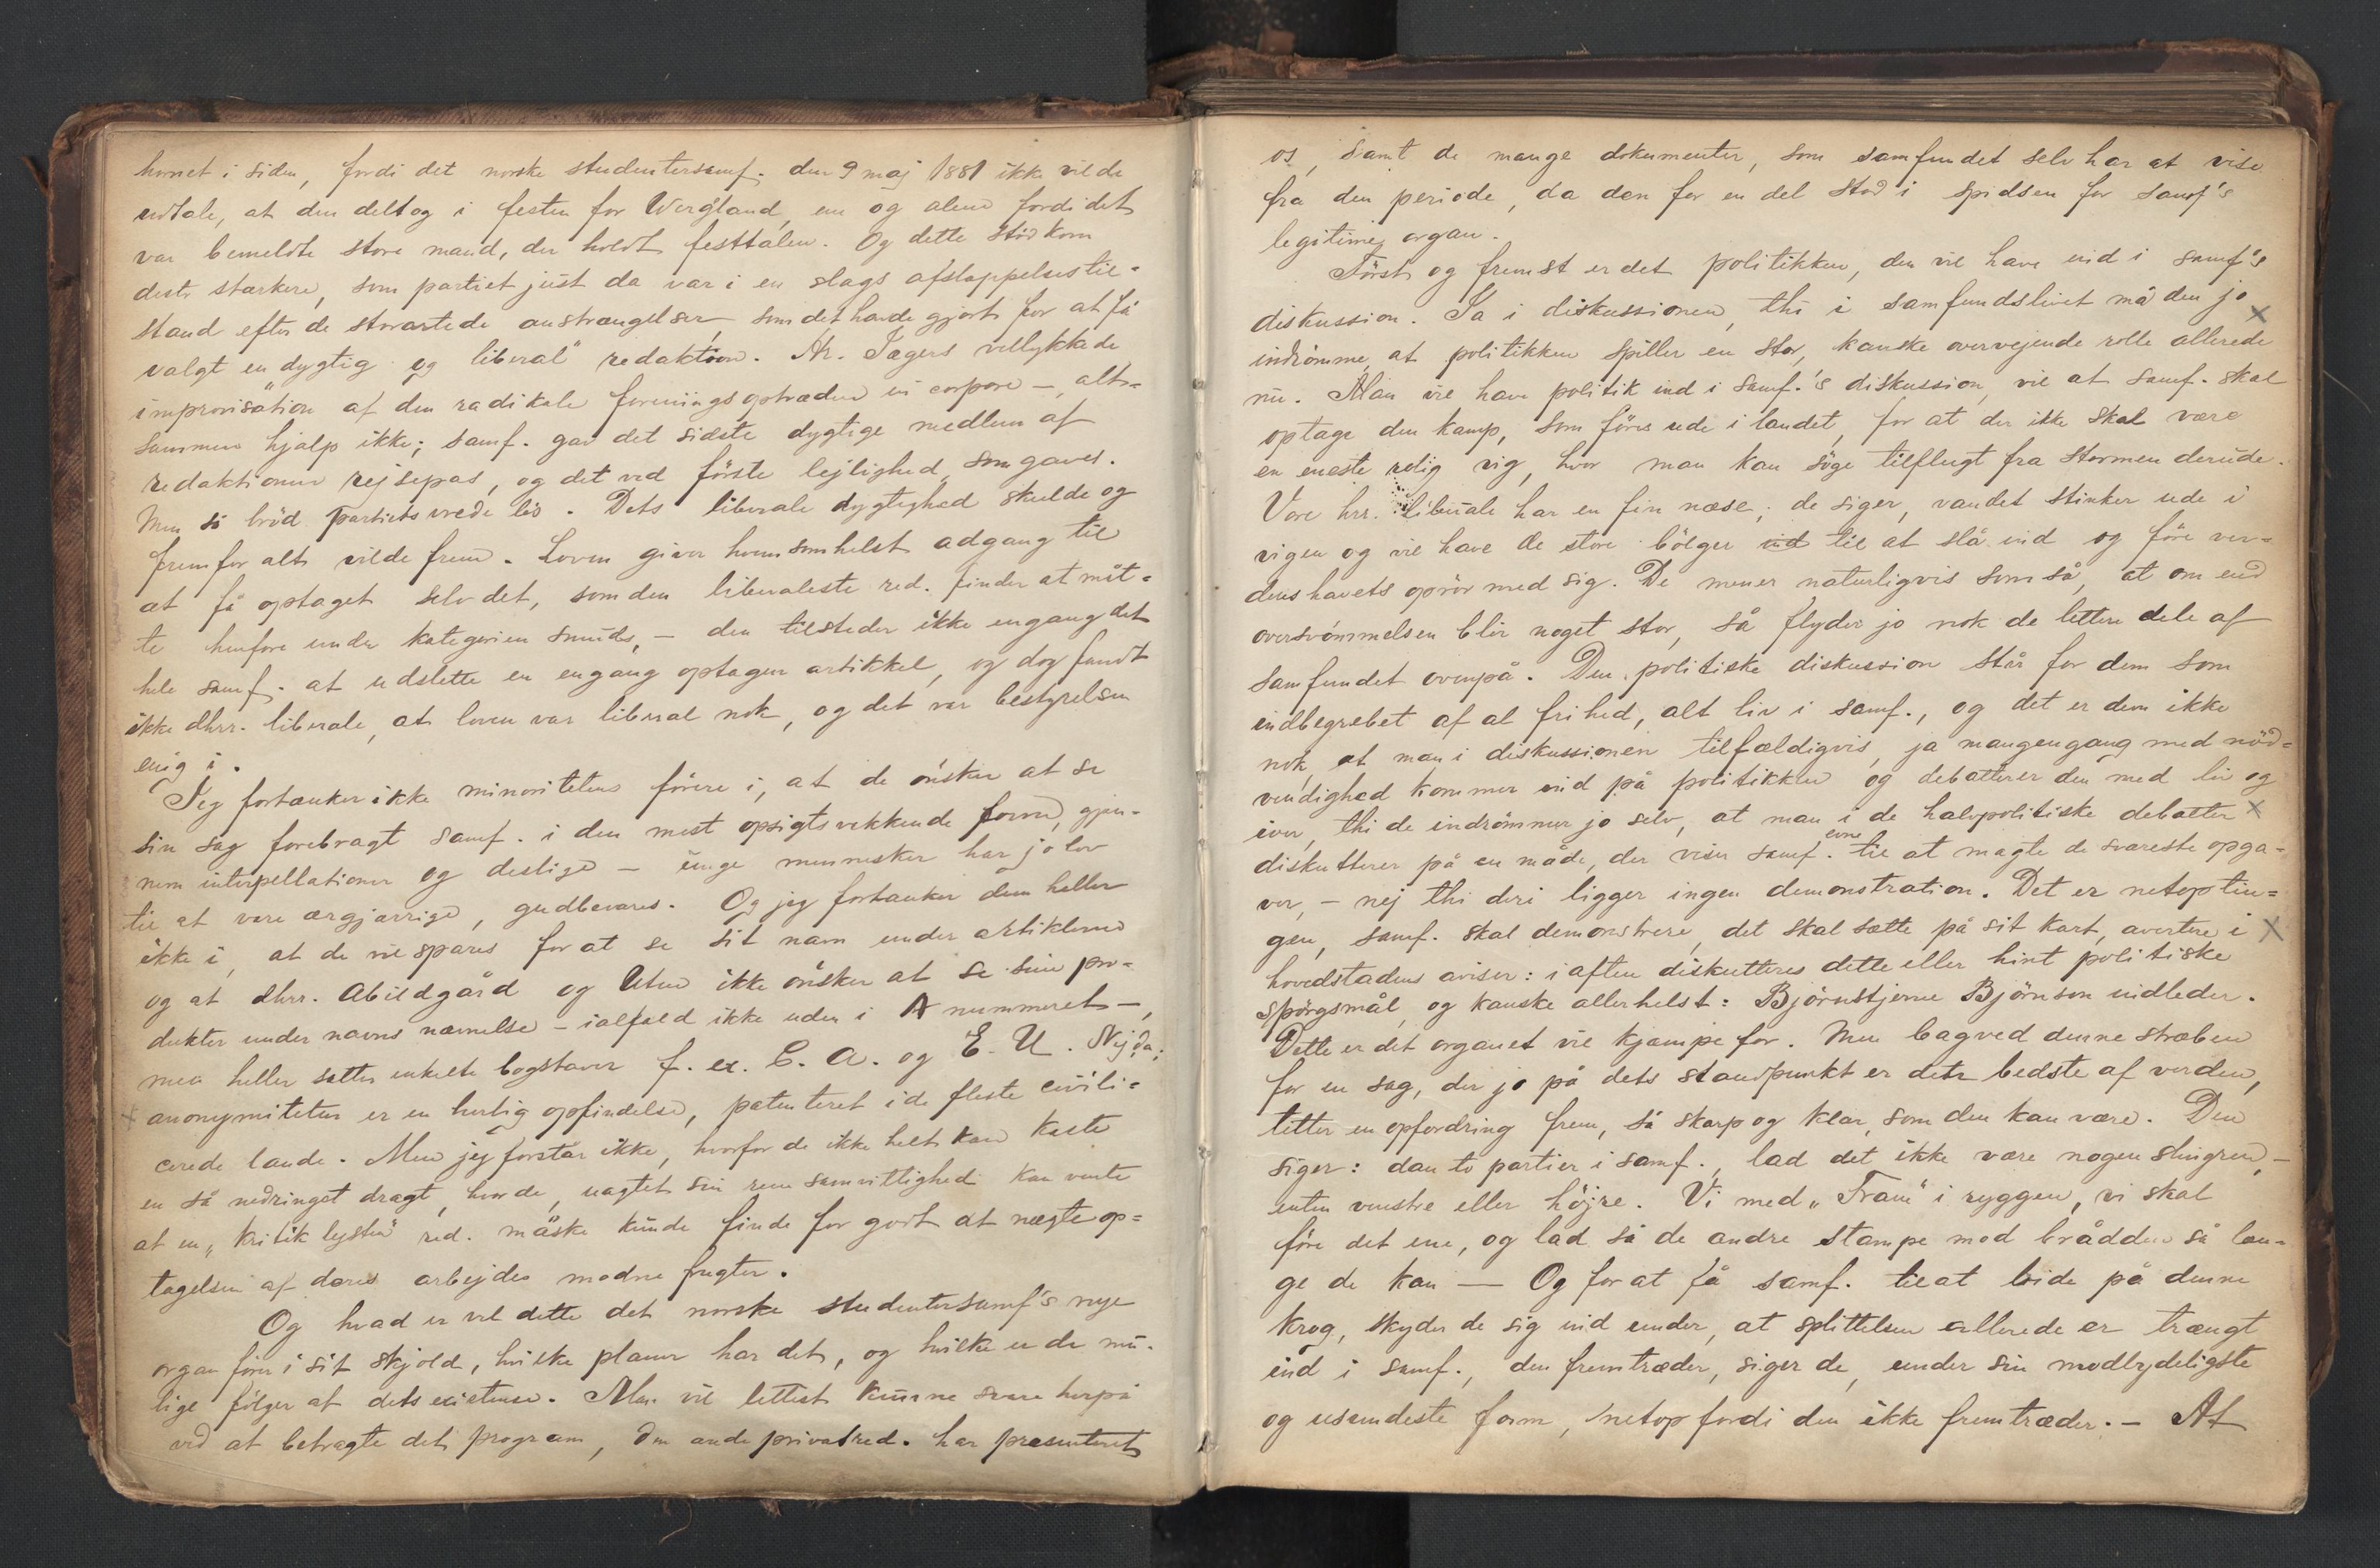 hornet i siden, fordi det norske studentersamf. den 9 maj 1881 ikke vilde
udtale, at den deltog i festen for Wergland, ene og alene fordi det
var bemeldte store mand, der holdt festtalen. Og dette stød kom
desto stærkere, som partiet just da var i en slags afslappelsestil-
stand efter de storartede anstrængelser, som det havde gjort for at få
valgt en „dygtig og liberal" redaktion. Hr. Jægers vellykkede
improvisation af den radikale forenings optræden in corpore –, alt-
sammen hjalp ikke; samf. gav det sidste dygtige medlem af
redaktionen rejsepas, og det ved förste lejlighed, som gaves.
Men så bröd partiets vrede lös. Dets liberale dygtighed skulde og
fremfor alt vilde frem. Loven giver hvemsomhelst adgang til
at få optaget selv det, som den liberaleste red. finder at måt-
te henføre under kategorien smuds, – den tilsteder ikke engang det
hele samf. at udslette en engang optagen artikkel, og dog fandt
ikke dhrr. liberale, at loven var liberal nok, og det var bestyrelsen
enig i.
Jeg fortænker ikke minoritetens förere i, at de önsker at se
sin sag forebragt samf. i den mest opsigtsvækkende form, gjen-
nem interpellationer og deslige – unge mennesker har jo lov
til at være ærgjærrige, gudbevares. Og jeg fortænker dem heller
ikke i, at de vil spares for at se sit navn under artiklerne
og at dhrr. Abildgård og Utne ikke önsker at se sine pro-
dukter under navns nævnelse – ialfald ikke uden i A nummeret –,
men heller sætter enkelte bogstaver f. ex. C. A. og E. U. Nej da;
anonymiteten er en herlig opfindelse, patenteret i de fleste civili-
cerede lande. Men jeg forstår ikke, hvorfor de ikke helt kan kaste
en så nedringet dragt, hvor de, uagtet sin rene samvittighed kan vente
at en „kritiklysten" red. måske kunde finde for godt at nægte op-
tagelsen af deres arbejdes modne frugter.
Og hvad er vel dette det norske studentersamf's nye
organ förer i sit skjold, hvilke planer har det, og hvilke er de mu-
lige fölger af dets existense. Man vil lettest kunne svare herpå
ved at betragte det program, den ande privatred. har præsenteret
os, samt de mange dokumenter, som samfundet selv har at vise
fra den periode, da den for en del stod i spidsen for samf's
legitime organ.
Först og fremst er det politikken, den vil have ind i samf's
diskussion. Ja i diskussionen, thi i samfundslivet må den jo
indrömme, at politikken spiller en stor, kanske overvejende rolle allerede
nu. Man vil have politik ind i samf.'s diskussion, vil at samf. skal
optage den kamp, som föres ude i landet, for at der ikke skal være
en eneste rolig vig, hvor man kan söge tilflugt fra stormen derude.
Vore hrr. liberale har en fin næse; de siger, vandet stinker ude i
vigen og vil have de store bölger ind til at slå ind og före ver-
denshavets oprör med sig. De mener naturligvis som så, at om end
oversvömmelsen blir noget stor, så flyder jo nok de lettere dele af
samfundet ovenpå. Den politiske diskussion står for dem som
indbegrebet af al frihed, alt liv i samf., og det er dem ikke
nok, at man i diskussionen tilfældigvis, ja mangengang med nöd-
vendighed kommer ind på politikken og debatterer den med liv og
iver, thi de indrömmer jo selv, at man i de halvpolitiske debatter
diskutterer på en måde, der viser samf. evne til at magte de sværeste opga-
ver, – nej thi deri ligger ingen demonstration. Det er netop tin-
gen, samf. skal demonstrere, det skal sætte på sit kart, avertere i
hovedstadens aviser: i aften diskutteres dette eller hint politiske
spörgsmål, og kanske allerhelst: Björnstjerne Björnson indleder.
Dette er det organet vil kjæmpe for. Men bagved denne stræben
for en sag, der jo på dets standpunkt er dets bedste af verden,
titter en opfordring frem, så skarp og klar, som den kan være. Den
siger: dan to partier i samf., lad det ikke være nogen slingren, –
enten venstre eller höjre. Vi med „Fram" i ryggen, vi skal
före det ene, og lad så de andre stampe mod brådden så læn-
ge de kan — Og for at få samf. til at bide på denne
krog, skyder de sig ind under, at splittelsen allerede er trængt
ind i samf., den fremtræder, siger de, under sin modbydeligste
og usundeste form, netop fordi den ikke fremtræder. – At